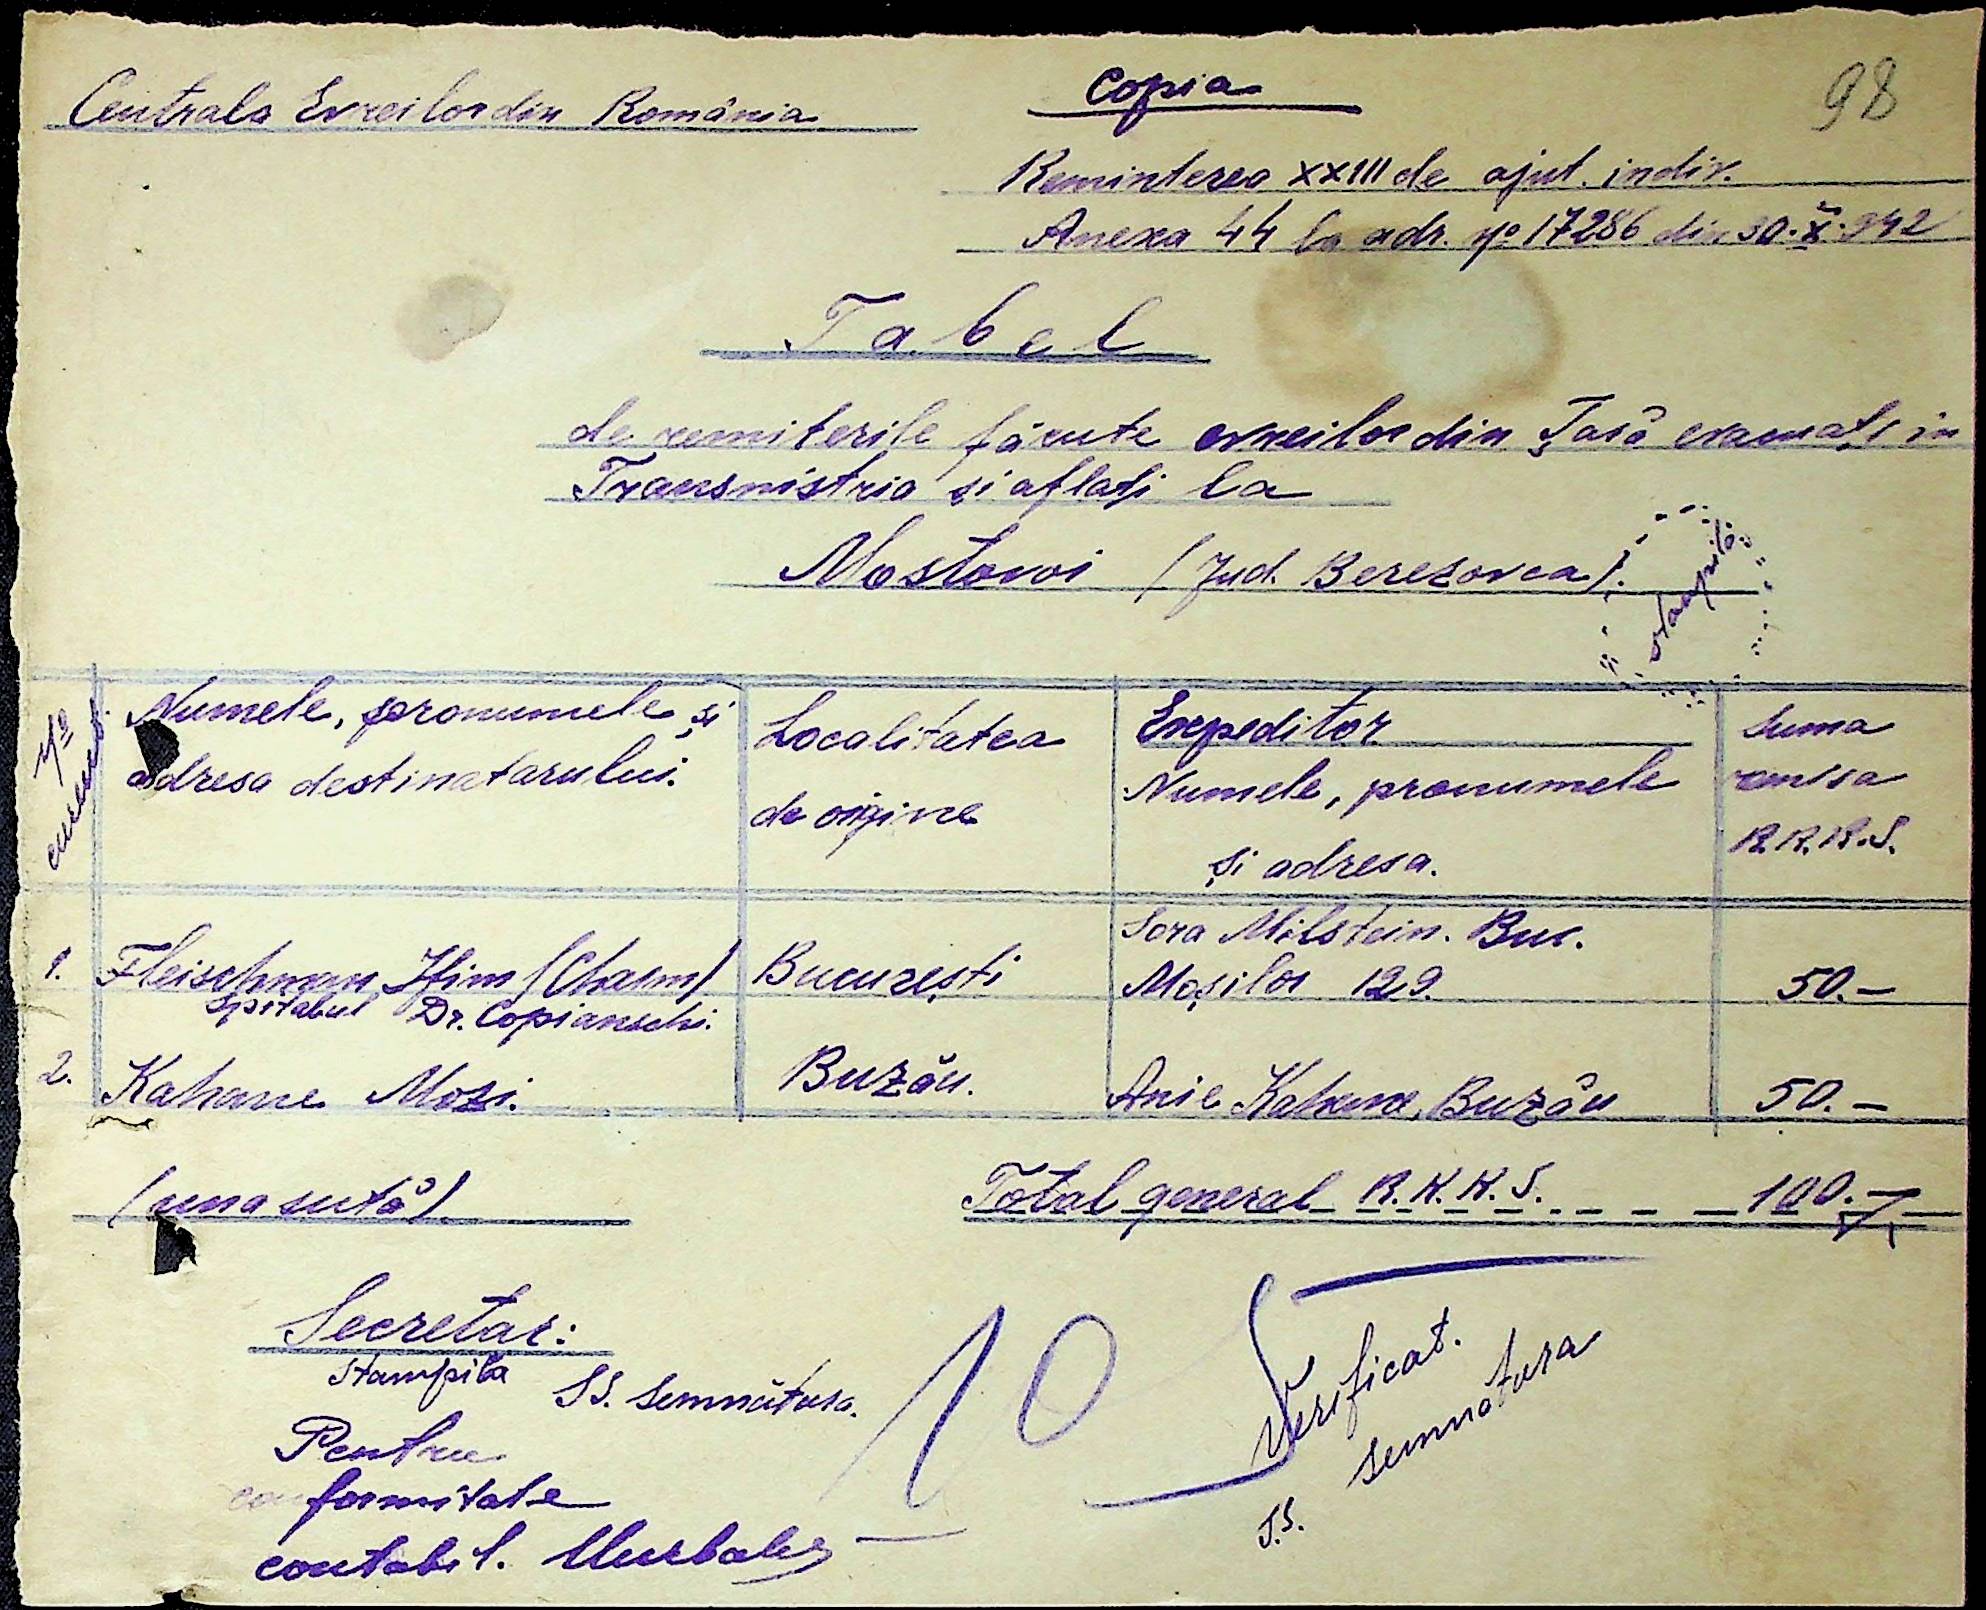 Centrala Evreilor din România
Copia
98
Remiterea XXIII de ajut. indiv.
Anexa 44 la adr. No 17286 din 30.X.942
Tabel
de remiterile făcute evreilor din Țară evacuați in
Transnistria și aflați la
Mostovoi (Jud. Berezovca).
stampila
No curent.
Numele, pronumele și
adresa destinatarului.
Localitatea
de origine
Expeditor
Numele, pronumele
și adresa.
Suma
remisa
R.K.K.S.
1. Fleischman Ifim (Chaim) București Sora Milstein. Buc. Moșilor 129. 50.—
Spitalul Dr. Copianschi.
2. Kahane Mozi. Buzău. Anie Kahane, Buzău 50.—
(una sută) Total general R.K.K.S. 100.—
Secretar:
Stampila
SS. Semnătura.
Pentru
conformitate
contabil.
10
Verificat.
S.S. semnătura